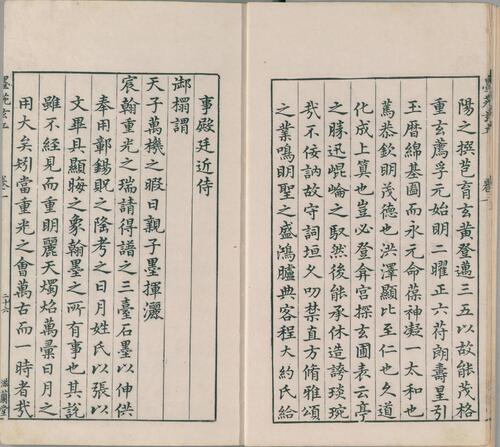 陽之撰苞育玄黃登邁三五以故能茂格
重玄薦孚元始明二曜正六苻朗壽星引
玉曆綿基圖而永元命葆神凝一太和也
篤恭欽明茂德也洪澤顯比至仁也久道
化成上算也豈必登弇宮探玄圃表云亭
之勝迅崐崘之馭然後能承休造誇琰琬
㢤不佞訥故守詞垣久叨禁直方脩雅頌
之業鳴明聖之盛鴻臚典客程大約氏給
事殿廷近侍
御榻謂
天子萬機之暇日親子墨揮灑
宸翰重光之瑞請得譜之三臺石墨以伸供
奉用鄣鍚貺之陰考之日月姓氏以張以
文畢具顯晦之象翰墨之所有事也其說
雖不經見而重明麗天燭焰萬彚日月之
用大矣矧當重光之會萬古而一時者㢤
卷一
二十六
滋蘭堂